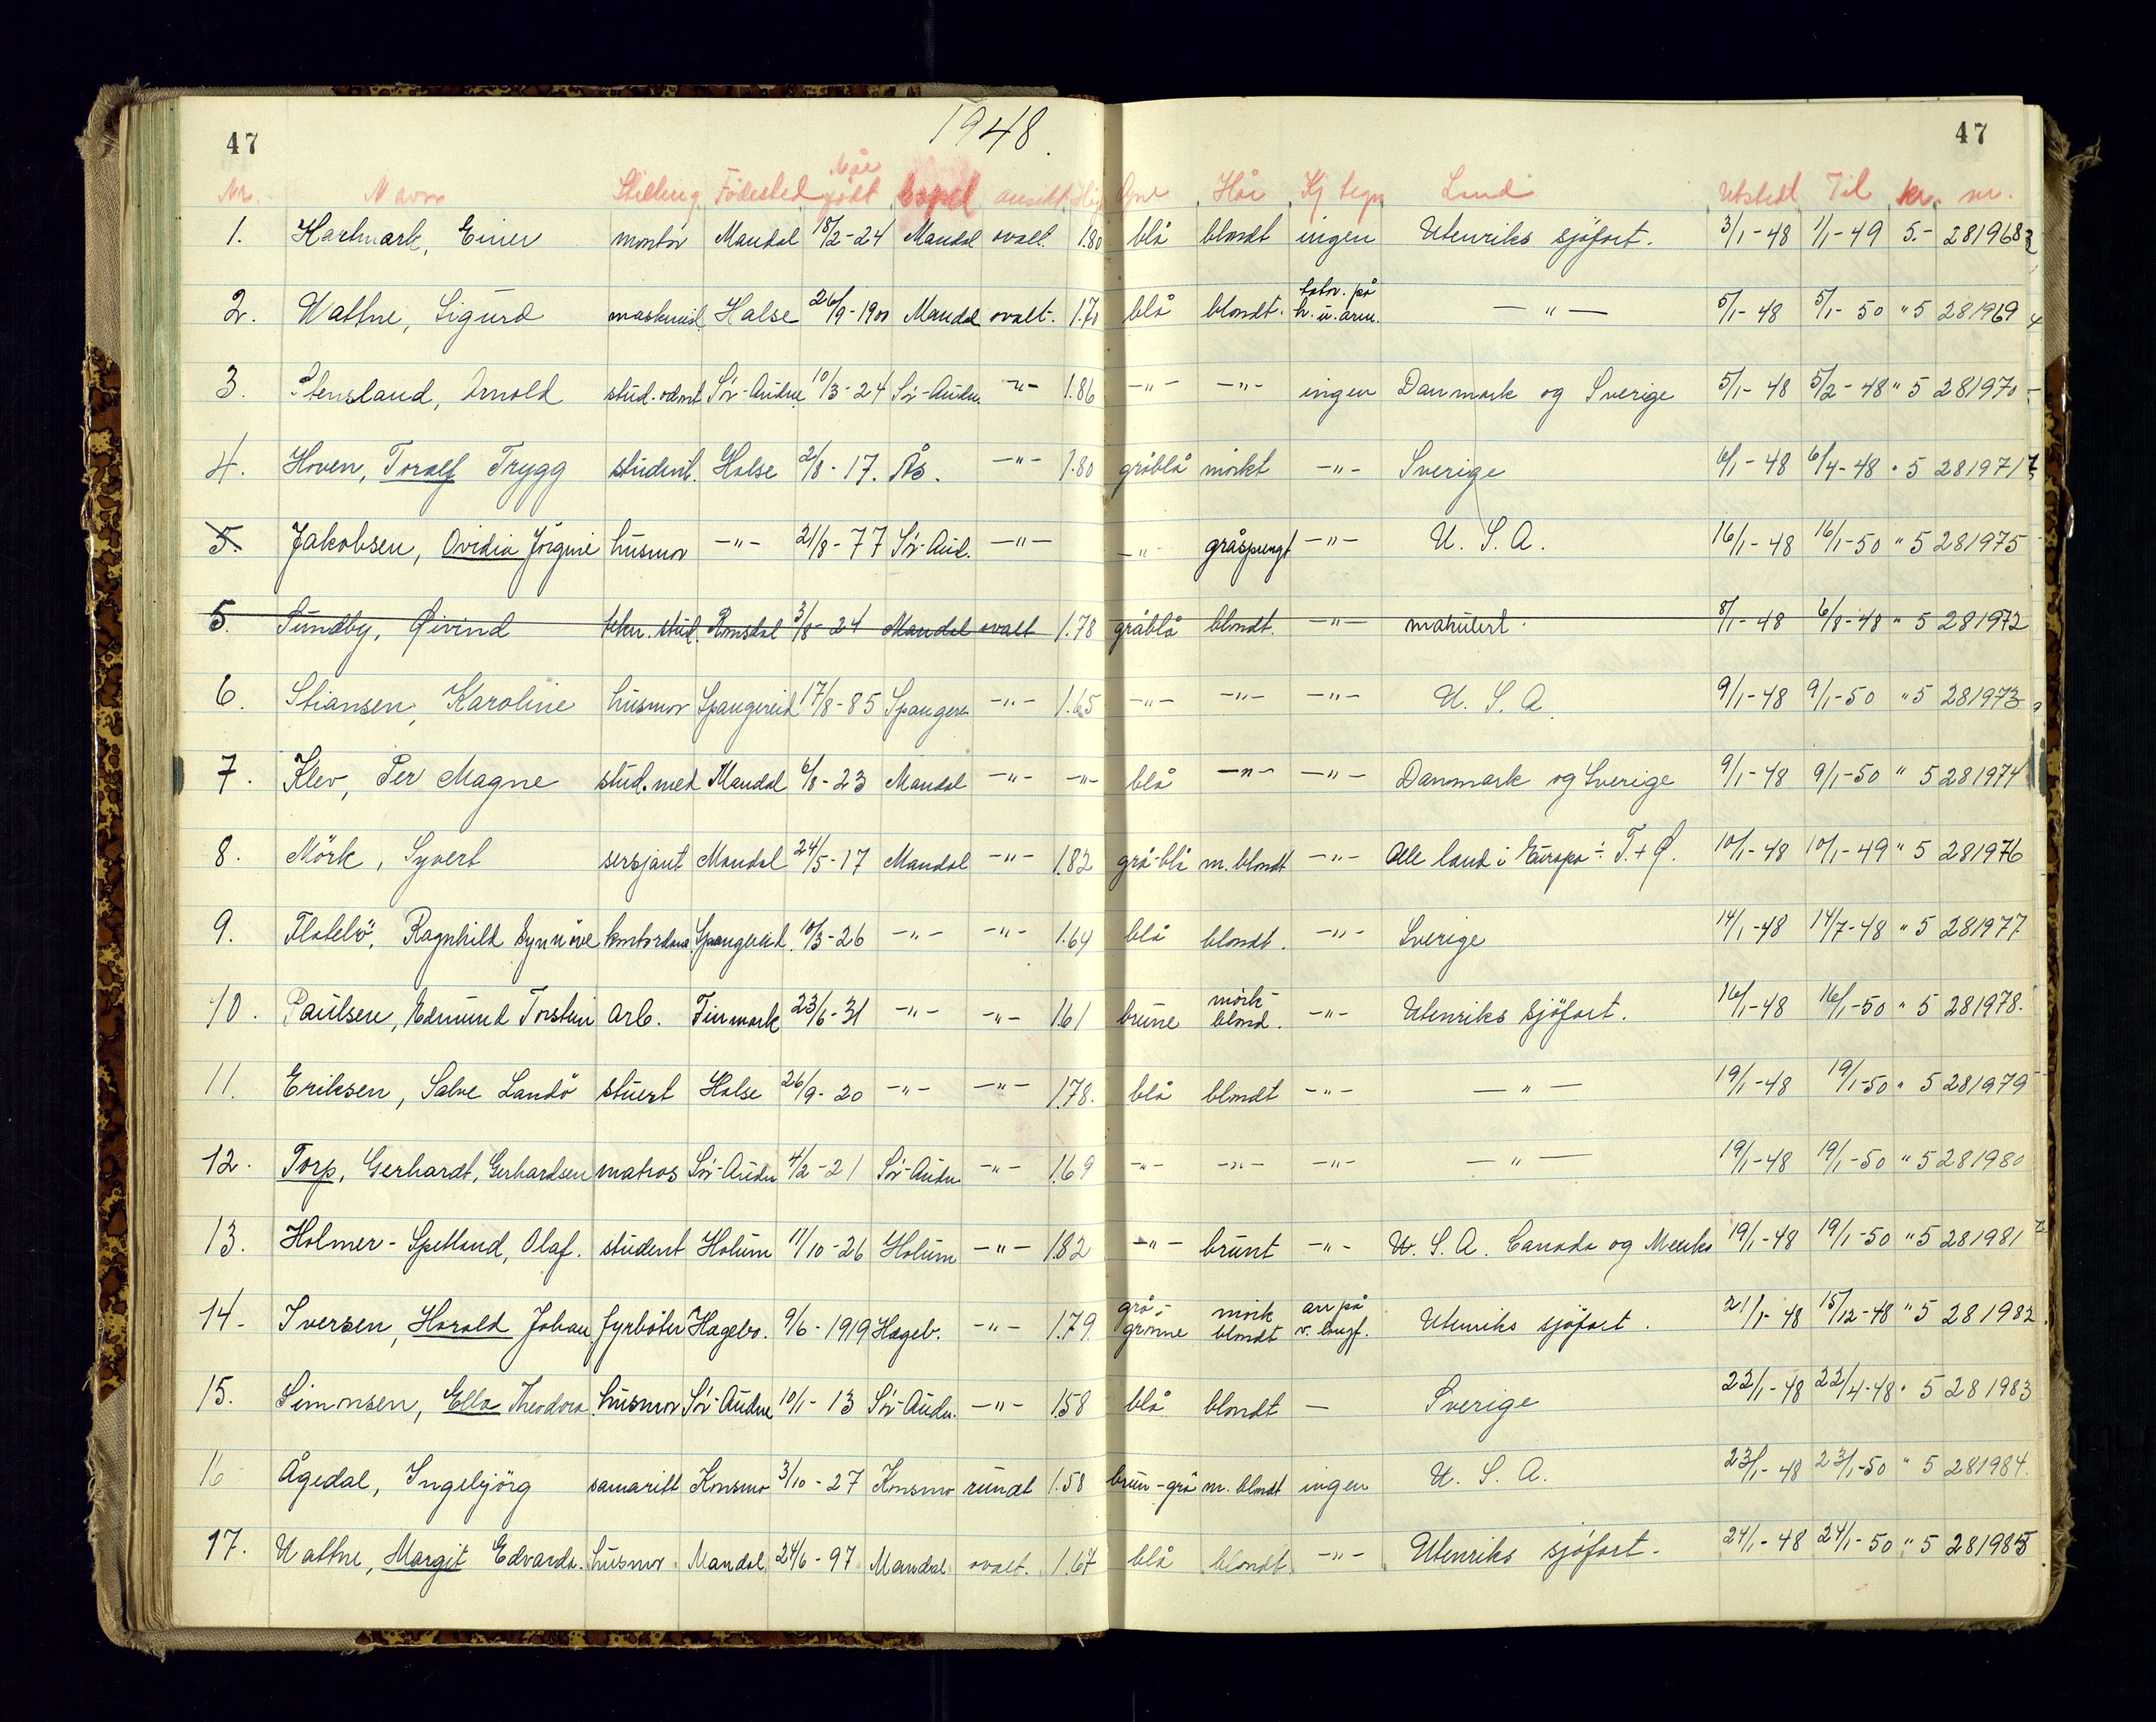 47 1948. 47
Nr. Navn Stilling Födested Når födt bopel ansikt Höy Öyne Hår Kj tegn Land Utstedt Til kr. nr.
1. Hartmark, Einer montör Mandal 18/2-24 Mandal ovalt. 1.80 blå blondt ingen Utenriks sjöfart. 3/1-48 1/1-49 5.- 281968
2. Wattne, Sigurd maskinist Halse 26/9-1900 Mandal ovalt. 1.70 blå blondt. tatov. på h. u. arm. -"- 5/1-48 5/1-50 " 5 281969
3. Stensland, Arnold stud. odont Sör-Audne 10/3-24 Sör-Audn. -"- 1.86 -"- -"- ingen Danmark og Sverige 5/1-48 5/2-48 " 5 281970
4. Hoven, Toralf Trygg student. Halse 2/8-17. Ås. -"- 1.80 gråblå mörkt -"- Sverige 6/1-48 6/4-48 " 5 281971
5. Jakobsen, Ovidia Jörgine husmor -"- 21/8-77 Sör-Aud. -"- -"- gråsprengt -"- U. S. A. 16/1-48 16/1-50 " 5 281975
5. Sundby, Øivind tekn. stud. Romsdal 3/8-24 Mandal ovalt 1.78 gråblå blondt. -"- makulert. 8/1-48 6/8-48 " 5 281972
6. Stiansen, Karoline husmor Spangereid 17/8-85 Spangere. -"- 1.65 -"- -"- -"- U. S. A. 9/1-48 9/1-50 " 5 281973
7. Klev, Per Magne stud. med Mandal 6/8-23 Mandal -"- -"- blå -"- -"- Danmark og Sverige 9/1-48 9/1-50 " 5 281974
8. Mörk, Syvert sersjant Mandal 24/5-17 Mandal -"- 1.82 grå-blå m. blondt -"- Alle land i Europa ÷ T. + Ø. 10/1-48 10/1-49 " 5 281976
9. Flatelö, Ragnhild Synnöve kontordame Spangereid. 10/3-26 -"- -"- 1.64 blå blondt. -"- Sverige 14/1-48 14/7-48 " 5 281977
10. Paulsen, Edmund Torstein Arb. Finmark 23/6-31 -"- -"- 1.61 brune mörk-blond. -"- Utenriks sjöfart. 16/1-48 16/1-50 " 5 281978.
11. Eriksen, Salve Landö stuert Halse 26/9-20 -"- -"- 1.78. blå blondt -"- -"- 19/1-48 19/1-50 " 5 281979
12. Torp, Gerhardt, Gerhardsen matros Sör-Audn 4/2-21 Sör-Audn -"- 1.69 -"- -"- -"- -"- 19/1-48 19/1-50 " 5 281980
13. Holmer-Spetland, Olaf. student Holum 11/10-26 Holum -"- 1.82 -"- brunt -"- U. S. A. Canada og Meksiko 19/1-48 19/1-50 " 5 281981
14. Iversen, Harald Johan fyrböter Hægebo. 9/6-1919 Hægeb. -"- 1.79. grå-grönne mörk blondt arr på v. langf. Utenriks sjöfart. 21/1-48 15/12-48 " 5 281982.
15. Simonsen, Ella Theodora. husmor Sör-Audne 10/1-13 Sör-Audn. -"- 1.58 blå blondt - Sverige 22/1-48 22/4-48 " 5 281983
16 Ågedal, Ingebjörg samaritt Konsmo 3/10-27 Konsmo rundt 1.58 brun-grå m. blondt ingen U. S. A. 23/1-48 23/1-50 " 5 281984.
17. Wattne, Margit Edvarda. husmor. Mandal 24/6-97 Mandal ovalt. 1.67 blå blondt. -"- Utenriks sjöfart. 24/1-48 24/1-50 " 5 281985